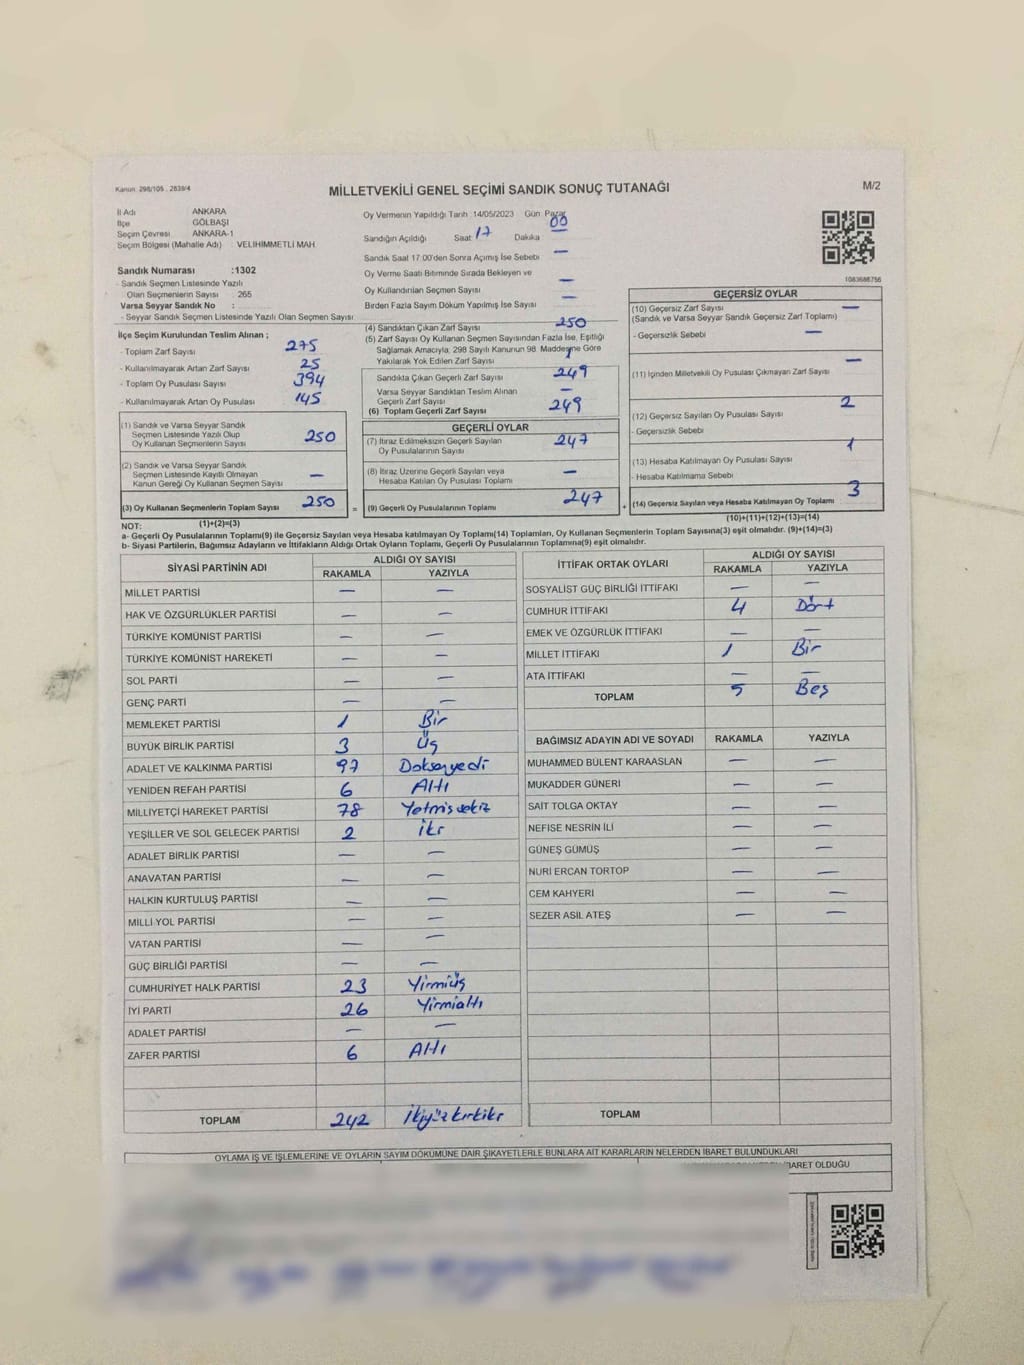 Kanun: 298/105 , 2839/4
MİLLETVEKİLİ GENEL SEÇİMİ SANDIK SONUÇ TUTANAĞI
M/2
İl Adı ANKARA
İlçe GÖLBAŞI
Seçim Çevresi ANKARA-1
Seçim Bölgesi (Mahalle Adı) : VELİHİMMETLİ MAH.
Sandık Numarası :1302
- Sandık Seçmen Listesinde Yazılı
Olan Seçmenlerin Sayısı : 265
Varsa Seyyar Sandık No :
- Seyyar Seçmen Listesinde Yazılı Olan Seçmen Sayısı:
Oy Vermenin Yapıldığı Tarih :14/05/2023 Gün: Pazar
Sandığın Açıldığı Saat 17 Dakika 00
Sandık Saat 17.00'den Sonra Açımış İse Sebebi —
Oy Verme Saati Bitiminde Sırada Bekleyen ve
Oy Kullandırılan Seçmen Sayısı —
Birden Fazla Sayım Döküm Yapılmış İse Sayısı —
1083686756
İlçe Seçim Kurulundan Teslim Alınan ;
- Toplam Zarf Sayısı 275
- Kullanılmayarak Artan Zarf Sayısı 25
- Toplam Oy Pusulası Sayısı 394
- Kullanılmayarak Artan Oy Pusulası 145
(1) Sandık ve Varsa Seyyar Sandık
Seçmen Listesinde Yazılı Olup
Oy Kullanan Seçmenlerin Sayısı 250
(2) Sandık ve Varsa Seyyar Sandık
Seçmen Listesinde Kayıtlı Olmayan
Kanun Gereği Oy Kullanan Seçmen Sayısı —
(3) Oy Kullanan Seçmenlerin Toplam Sayısı 250
(1)+(2)=(3)
(4) Sandıktan Çıkan Zarf Sayısı 250
(5) Zarf Sayısı Oy Kullanan Seçmen Sayısından Fazla İse, Eşitliği
Sağlamak Amacıyla, 298 Sayılı Kanunun 98. Maddesine Göre
Yakılarak Yok Edilen Zarf Sayısı
Sandıkta Çıkan Geçerli Zarf Sayısı 249
Varsa Seyyar Sandıktan Teslim Alınan
Geçerli Zarf Sayısı —
(6) Toplam Geçerli Zarf Sayısı 249
GEÇERLİ OYLAR
(7) İtiraz Edilmeksizin Geçerli Sayılan
Oy Pusulalarının Sayısı 247
(8) İtiraz Üzerine Geçerli Sayılan veya
Hesaba Katılan Oy Pusulası Toplamı —
= (9) Geçerli Oy Pusulalarının Toplamı 247 +
GEÇERSİZ OYLAR
(10) Geçersiz Zarf Sayısı —
(Sandık ve Varsa Seyyar Sandık Geçersiz Zarf Toplamı)
- Geçersizlik Sebebi —
(11) İçinden Milletvekili Oy Pusulası Çıkmayan Zarf Sayısı —
(12) Geçersiz Sayılan Oy Pusulası Sayısı 2
- Geçersizlik Sebebi
(13) Hesaba Katılmayan Oy Pusulası Sayısı 1
- Hesaba Katılmama Sebebi
(14) Geçersiz Sayılan veya Hesaba Katılmayan Oy Toplamı 3
(10)+(11)+(12)+(13)=(14)
NOT:
a- Geçerli Oy Pusulalarının Toplamı(9) ile Geçersiz Sayılan veya Hesaba katılmayan Oy Toplamı(14) Toplamları, Oy Kullanan Seçmenlerin Toplam Sayısına(3) eşit olmalıdır. (9)+(14)=(3)
b- Siyasi Partilerin, Bağımsız Adayların ve İttifakların Aldığı Ortak Oyların Toplamı, Geçerli Oy Pusulalarının Toplamına(9) eşit olmalıdır.
SİYASİ PARTİNİN ADI ALDIĞI OY SAYISI
RAKAMLA YAZIYLA
MİLLET PARTİSİ — —
HAK VE ÖZGÜRLÜKLER PARTİSİ — —
TÜRKİYE KOMÜNİST PARTİSİ — —
TÜRKİYE KOMÜNİST HAREKETİ — —
SOL PARTİ — —
GENÇ PARTİ — —
MEMLEKET PARTİSİ 1 Bir
BÜYÜK BİRLİK PARTİSİ 3 Üç
ADALET VE KALKINMA PARTİSİ 97 Doksanyedi
YENİDEN REFAH PARTİSİ 6 Altı
MİLLİYETÇİ HAREKET PARTİSİ 78 Yetmişsekiz
YEŞİLLER VE SOL GELECEK PARTİSİ 2 İki
ADALET BİRLİK PARTİSİ — —
ANAVATAN PARTİSİ — —
HALKIN KURTULUŞ PARTİSİ — —
MİLLİ YOL PARTİSİ — —
VATAN PARTİSİ — —
GÜÇ BİRLİĞİ PARTİSİ — —
CUMHURİYET HALK PARTİSİ 23 Yirmiüç
İYİ PARTİ 26 Yirmialtı
ADALET PARTİSİ — —
ZAFER PARTİSİ 6 Altı
TOPLAM 242 İkiyüzkırkiki
İTTİFAK ORTAK OYLARI ALDIĞI OY SAYISI
RAKAMLA YAZIYLA
SOSYALİST GÜÇ BİRLİĞİ İTTİFAKI — —
CUMHUR İTTİFAKI 4 Dört
EMEK VE ÖZGÜRLÜK İTTİFAKI — —
MİLLET İTTİFAKI 1 Bir
ATA İTTİFAKI — —
TOPLAM 5 Beş
BAĞIMSIZ ADAYIN ADI VE SOYADI RAKAMLA YAZIYLA
MUHAMMED BÜLENT KARAASLAN — —
MUKADDER GÜNERİ — —
SAİT TOLGA OKTAY — —
NEFİSE NESRİN İLİ — —
GÜNEŞ GÜMÜŞ — —
NURİ ERCAN TORTOP — —
CEM KAHYERİ — —
SEZER ASIL ATEŞ — —
TOPLAM
OYLAMA İŞ VE İŞLEMLERİNE VE OYLARIN SAYIM DÖKÜMÜNE DAİR ŞİKAYETLERLE BUNLARA AİT KARARLARIN NELERDEN İBARET BULUNDUKLARI
İBARET OLDUĞU